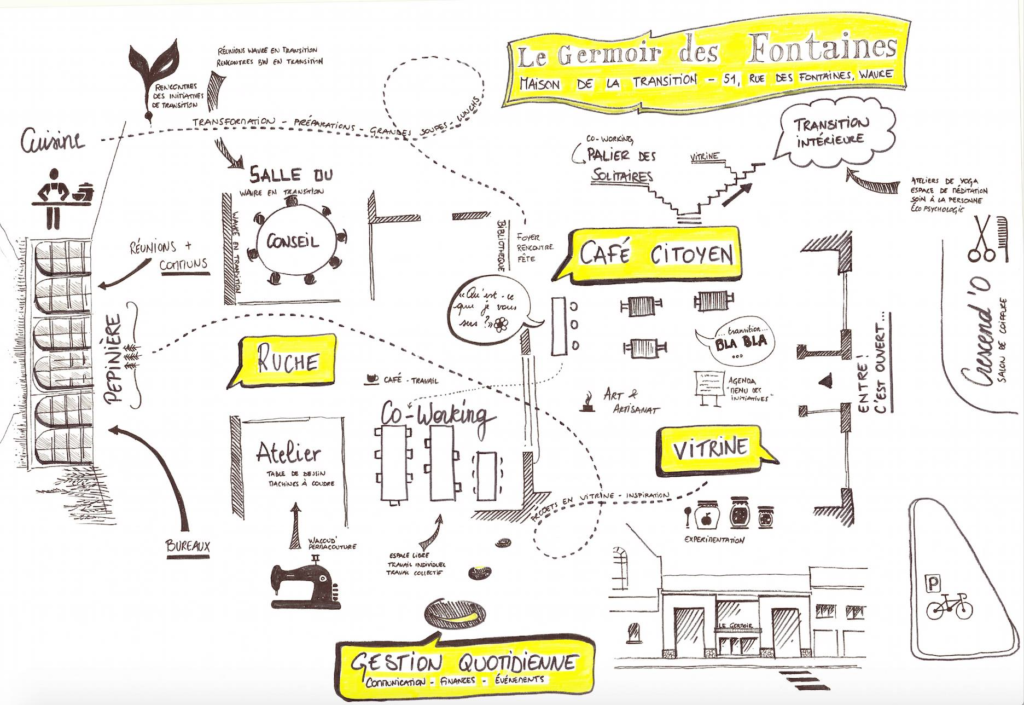 Le Germoir des Fontaines
MAISON DE LA TRANSITION - 51, RUE DES FONTAINES, WAVRE
RÉUNIONS WAVRE EN TRANSITION
RENCONTRES BW EN TRANSITION
RENCONTRES
DES INITIATIVES
DE TRANSITION
TRANSFORMATION - PRÉPARATIONS - GRANDES SOUPES - LUNCHS
Cuisine
CO-WORKING,
PALIER DES
SOLITAIRES
VITRINE
TRANSITION
INTÉRIEURE
ATELIERS DE YOGA
ESPACE DE MÉDITATION
SOIN À LA PERSONNE
ÉCOPSYCHOLOGIE
SALLE DU
WAVRE EN TRANSITION
CONSEIL
WAVRE EN TRANSITION
RÉUNIONS +
COMMUNS
BIBLIOTHÈQUE
FOYER
RENCONTRE
FÊTE
CAFÉ CITOYEN
"Qu'est-ce
que je vous
sers ?"
...transition...
BLA BLA
...
PÉPINIÈRE
RUCHE
CAFÉ-TRAVAIL
AGENDA
"MENU DES
INITIATIVES"
ENTRE!
C'EST OUVERT...
Crescend'O
SALON DE COIFFURE
ART &
ARTISANAT
CO-WORKING
Atelier
TABLE DE DESSIN
MACHINES À COUDRE
VITRINE
PROJETS EN VITRINE - INSPIRATION
EXPÉRIMENTATION
BUREAUX
PERMACOUTURE
ESPACE LIBRE
TRAVAIL INDIVIDUEL
TRAVAIL COLLECTIF
LE GERMOIR
P
GESTION QUOTIDIENNE
COMMUNICATION - FINANCES - ÉVÉNEMENTS